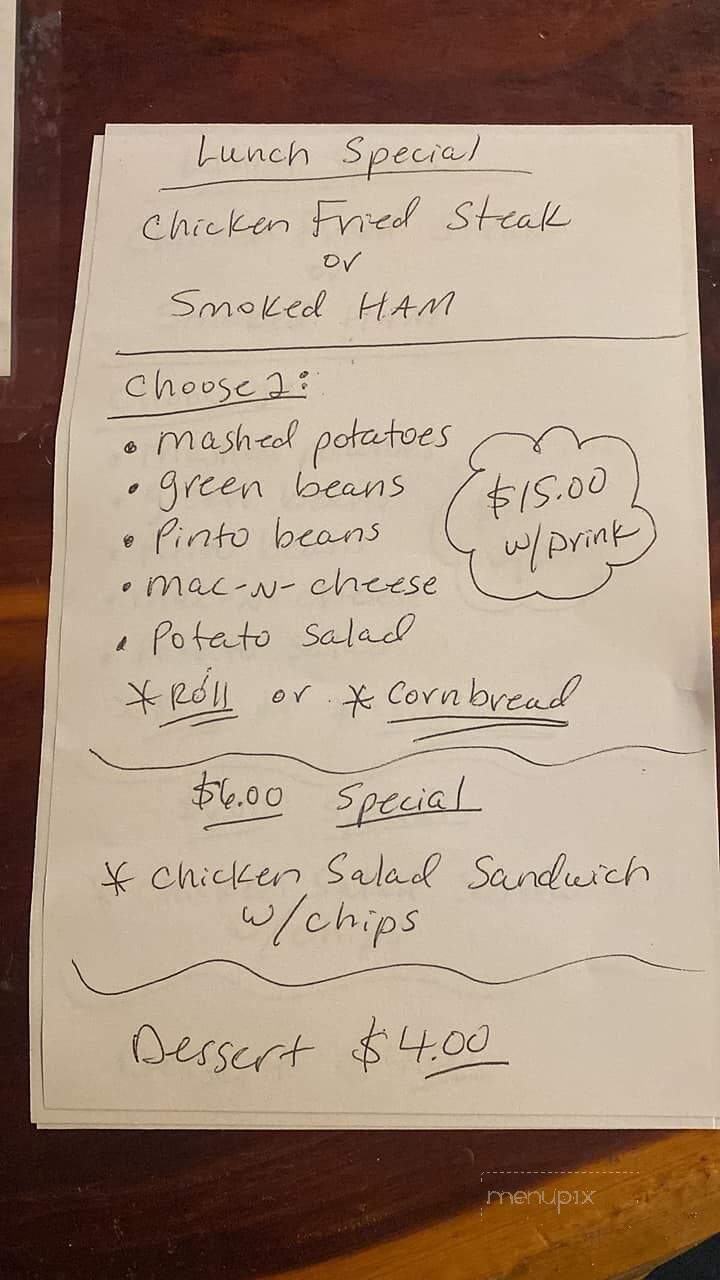 Lunch Special
Chicken Fried Steak
or
Smoked HAM
Choose 2:
• mashed potatoes
• green beans
• Pinto beans
• mac-N-cheese
• Potato Salad
$15.00
w/Drink
* Roll or * Cornbread
$6.00 Special
* Chicken Salad Sandwich
w/chips
Dessert $4.00
menupix